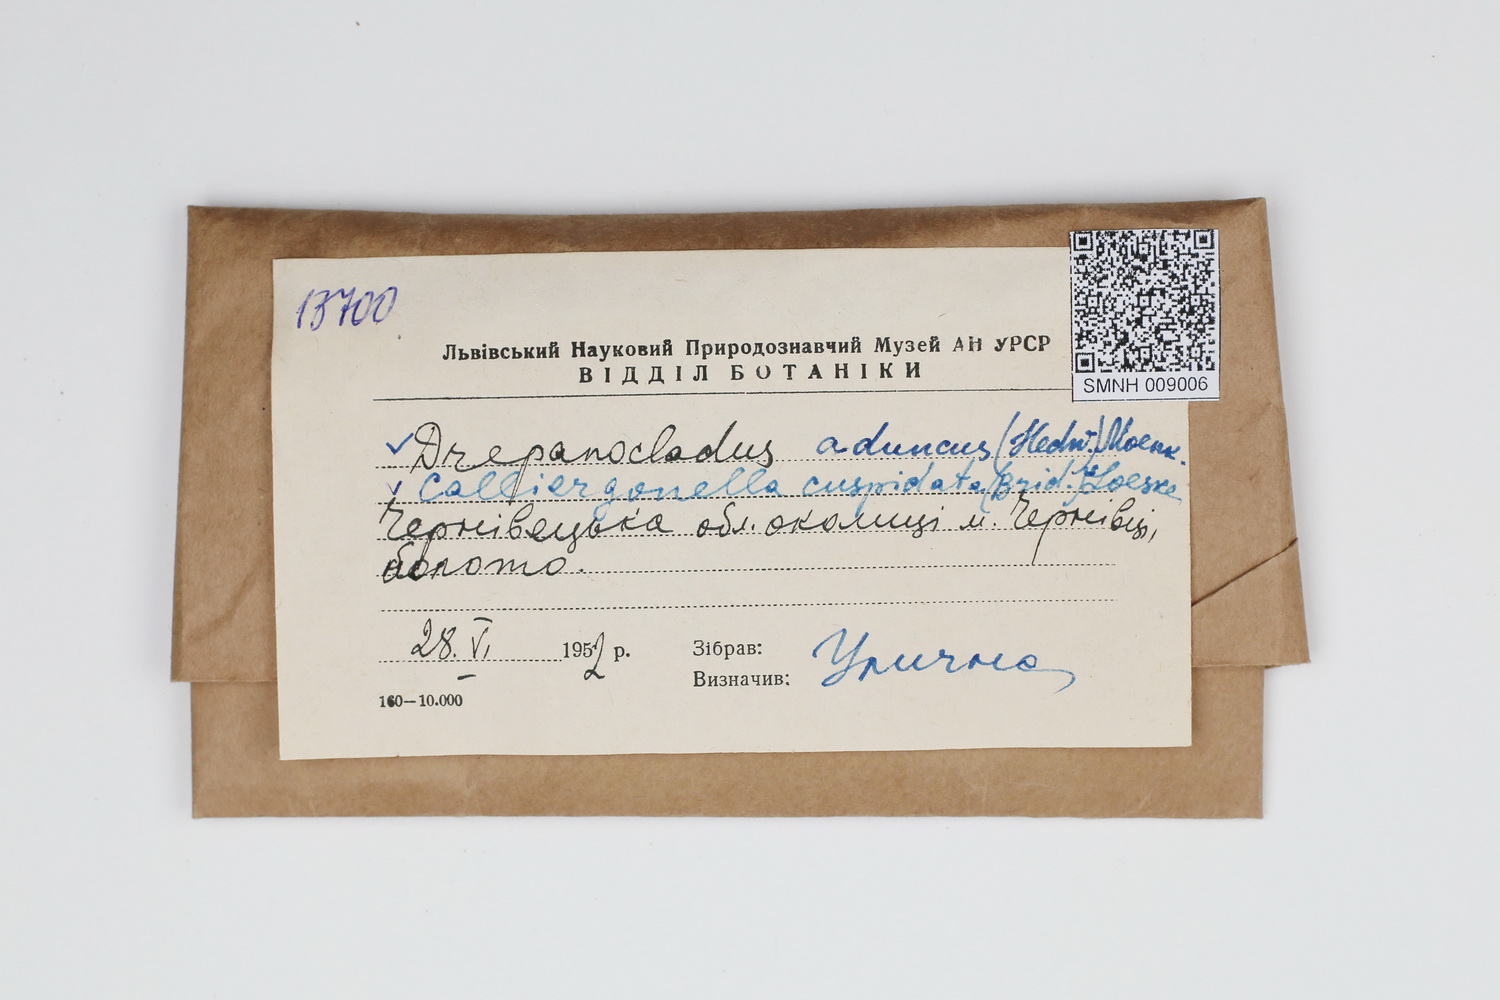 13700
Львівський Науковий Природознавчий Музей АН УРСР
ВІДДІЛ БОТАНІКИ
SMNH 009006
✓ Drepanocladus aduncus (Hedw.) Moenk.
✓ Calliergonella cuspidata (Brid.) Loeske
Чернівецька обл. околиці м. Чернівці,
болото.
28. VI 1952 р.
Зібрав:
Визначив:
160—10.000